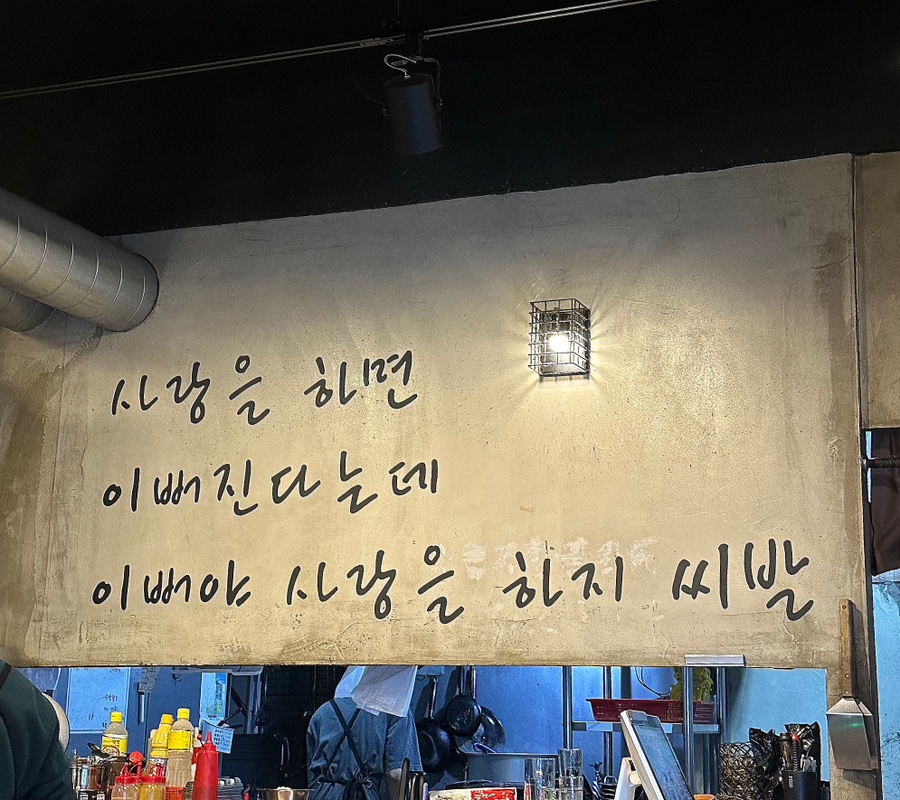 사랑을 하면
이뻐진다는데
이뻐야 사랑을 하지 씨발